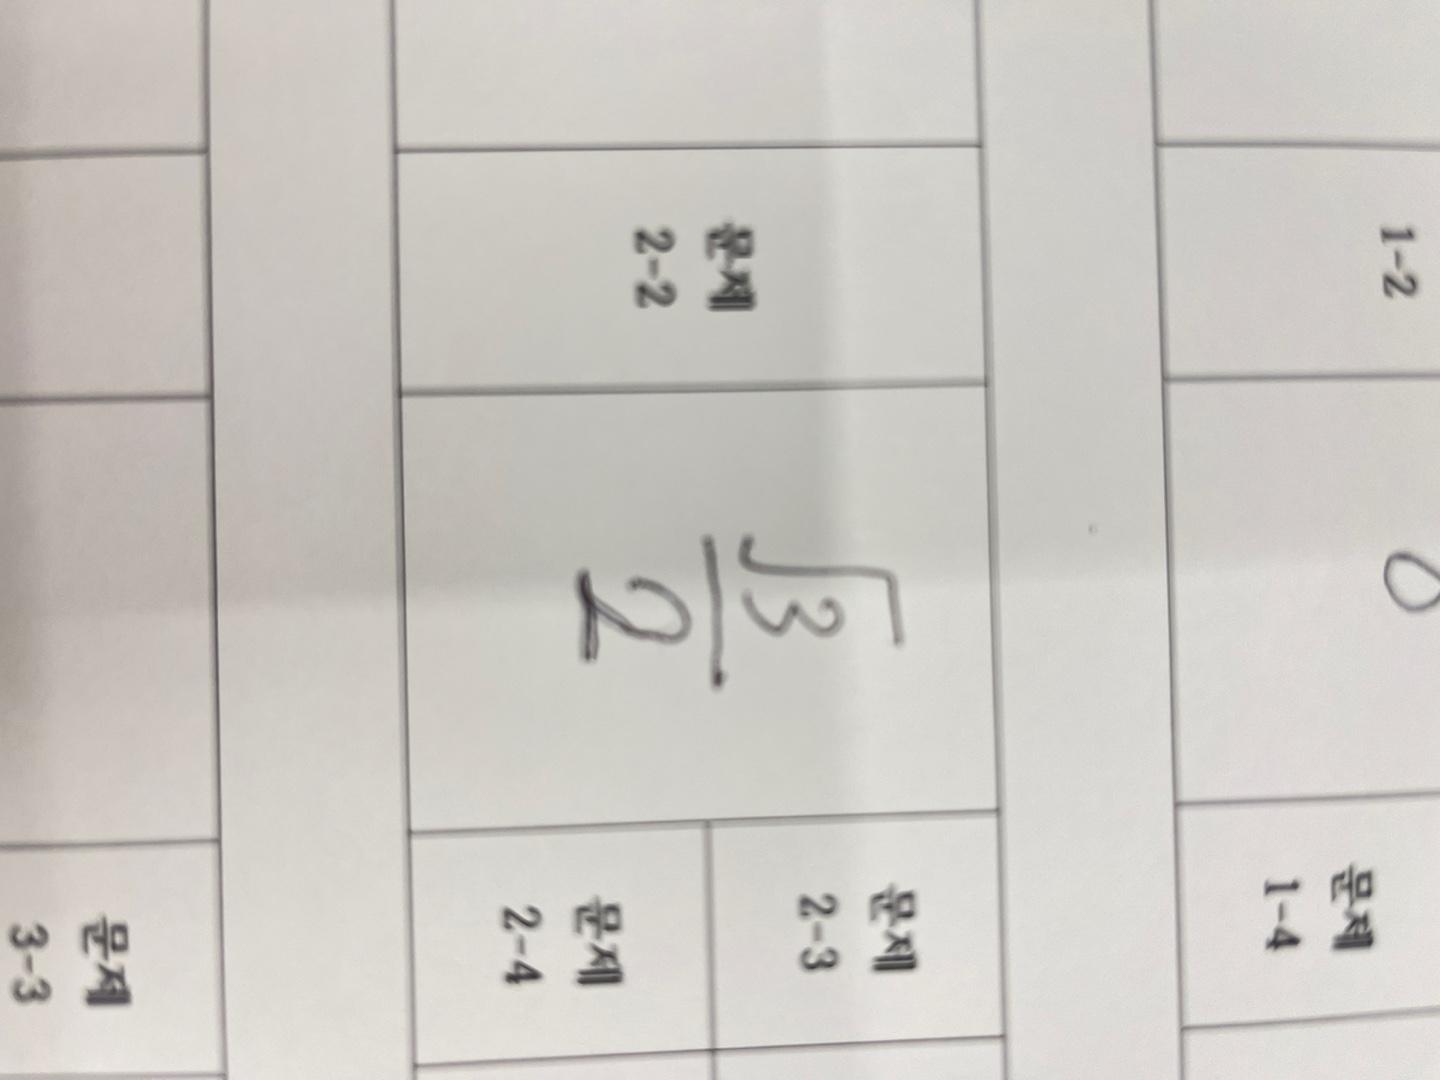 1-2
0
문제
1-4
문제
2-2
√3/2
문제
2-3
문제
2-4
문제
3-3